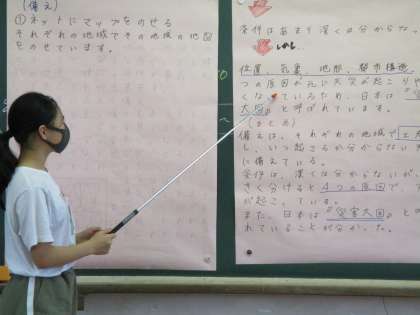 (備え)
①ネットにマップをのせる
それぞれの地域でその地域の地図
をのせています。
条件はあまり深くは分からな
しかし…
位置、気象、地形、都市構造
つの原因が元に天災が起こりや
くなっているため、日本は
大国』と呼ばれています。
(まとめ)
備えは、それぞれの地域で
し、いつ起こるか分からない
に備えている。
条件は、深くは分からないが、
きく分けると4つの原因で、
が起こっている。
また、日本は『災害大国』との
れていることが分かった。